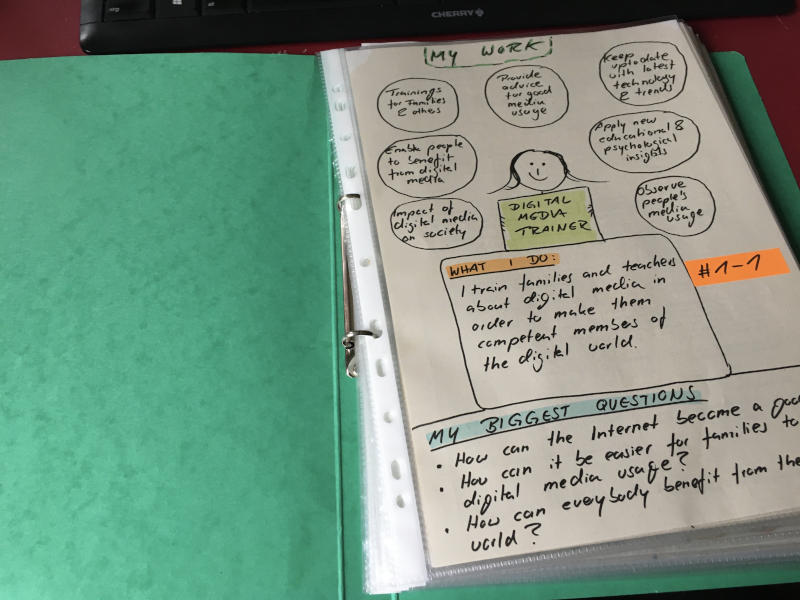 CHERRY
MY WORK
Trainings
for Families
& others
Provide
advice
for good
media
usage
Keep
up to date
with latest
technology
& trends
Enable people
to benefit
from digital
media
Apply new
educational &
psychological
insights
Impact of
digital media
on society
Observe
people's
media
usage
DIGITAL
MEDIA
TRAINER
WHAT I DO:
I train families and teachers
about digital media in
order to make them
competent members of
the digital world.
#1-1
MY BIGGEST QUESTIONS
• How can the Internet become a good
• How can it be easier for families to
digital media usage?
• How can everybody benefit from the
world?